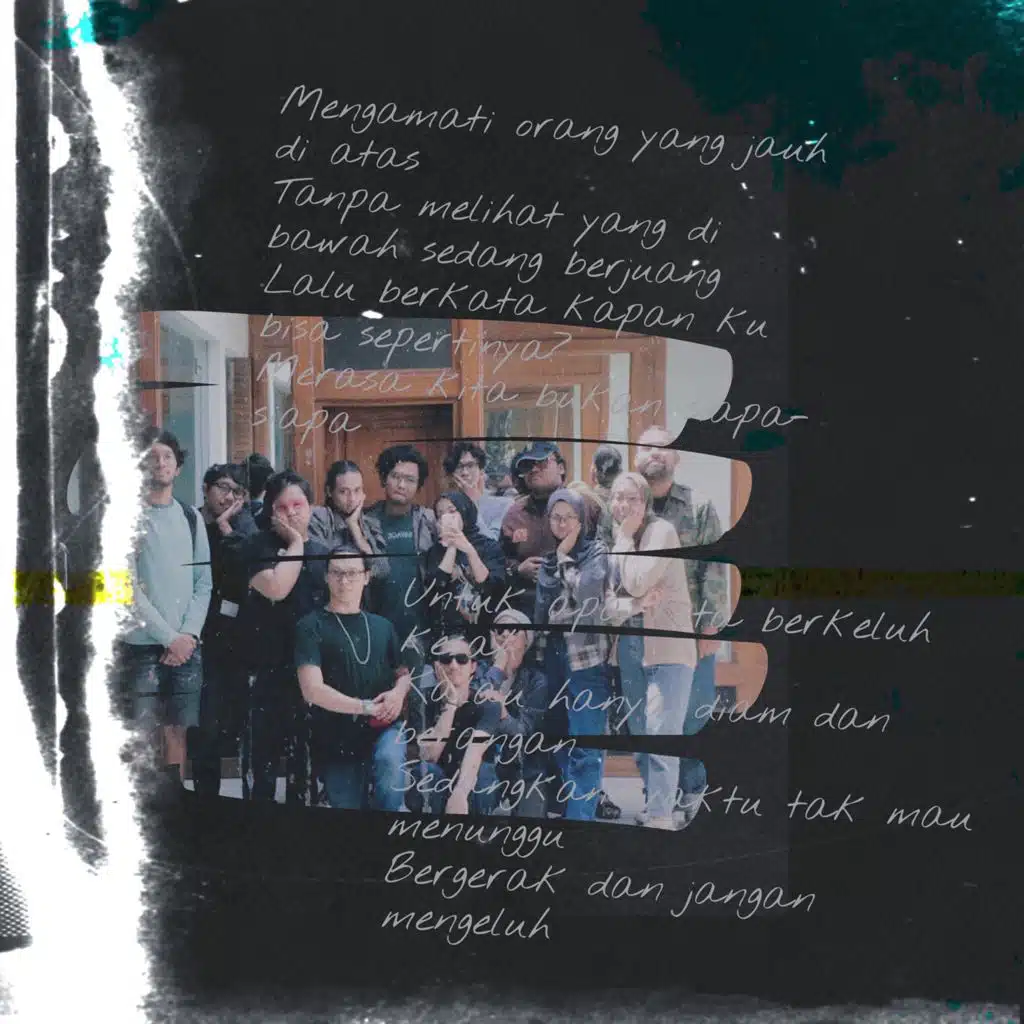 Mengamati orang yang jauh
di atas
Tanpa melihat yang di
bawah sedang berjuang
Lalu berkata kapan ku
bisa sepertinya?
Merasa kita bukan siapa-
siapa
Untuk apa kita berkeluh
kesah
Kalau hanya diam dan
berangan
Sedangkan waktu tak mau
menunggu
Bergerak dan jangan
mengeluh